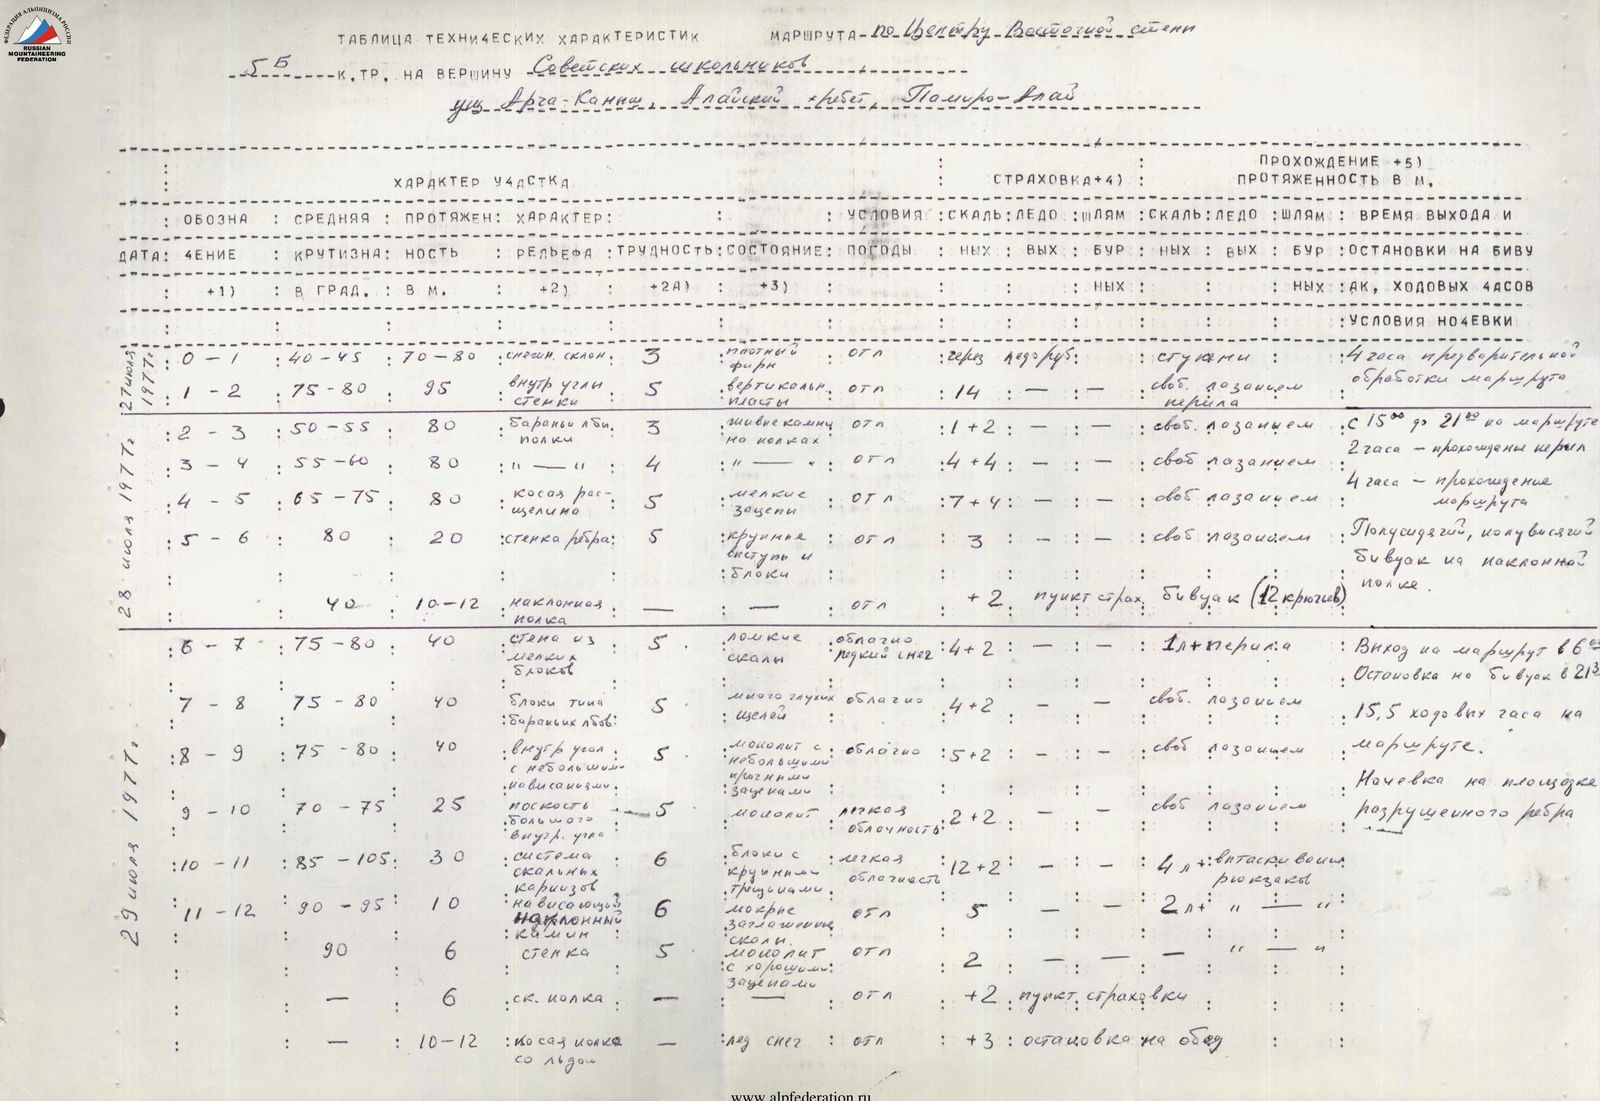 ФЕДЕРАЦИЯ АЛЬПИНИЗМА РОССИИ
RUSSIAN
MOUNTAINEERING
FEDERATION
ТАБЛИЦА ТЕХНИ4ЕСКИХ ХАРАКТЕРИСТИК МАРШРУТА по Центру Восточной стены
5Б К.ТР. НА ВЕРШИНУ Советских школьников
ущ Арча-Каныш, Алайский хребет, Памиро-Алай
ПРОХОЖДЕНИЕ +5)
ХАРАКТЕР У4АСТКА СТРАХОВКА+4) ПРОТЯЖЕННОСТЬ В М.
: ОБОЗНА : СРЕДНЯЯ : ПРОТЯЖЕН: ХАРАКТЕР: : : УСЛОВИЯ :СКАЛЬ:ЛЕДО :ШЛЯМ :СКАЛЬ:ЛЕДО :ШЛЯМ : ВРЕМЯ ВЫХОДА И
ДАТА: 4ЕНИЕ : КРУТИЗНА: НОСТЬ : РЕЛЬЕФА :ТРУДНОСТЬ:СОСТОЯНИЕ: ПОГОДЫ : НЫХ : ВЫХ : БУР : НЫХ : ВЫХ : БУР :ОСТАНОВКИ НА БИВУ
: +1) : В ГРАД. : В М. : +2) : +2А) : +3) : : : : НЫХ : : : НЫХ :АК, ХОДОВЫХ 4АСОВ
:УСЛОВИЯ НО4ЕВКИ
27 июля 1977г
0 - 1 40-45 70-80 снежн. склон 3 плотный фирн отл через ледоруб ступени 4 часа предварительной
1 - 2 75-80 95 внутр углы стенки 5 вертикальн пласты отл 14 — — своб. лазанием перила обработки маршрута
28 июля 1977г
2 - 3 50-55 80 бараньи лбы полки 3 живые камни на полках отл 1+2 — — своб. лазанием с 15⁰⁰ до 21⁰⁰ на маршруте
3 - 4 55-60 80 " — " 4 " — " отл 4+4 — — своб лазанием 2 часа - прохождены перил
4 - 5 65-75 80 косая расщелина 5 мелкие зацепы отл 7+4 — — своб лазанием 4 часа - прохождение маршрута
5 - 6 80 20 стенка ребра 5 крупные выступы и блоки отл 3 — — своб лазанием Полусидячий, полувисячий бивуак на наклонной полке.
40 10-12 наклонная полка — — отл +2 пункт страх. бивуак (12 крючьев)
29 июля 1977г
6 - 7 75-80 40 стена из мелких блоков 5 ломкие скалы облачно редкий снег 4+2 — — 1л+перила Выход на маршрут в 6⁰⁰
Остановка на бивуак в 21³
7 - 8 75-80 40 блоки типа бараньих лбов 5 много глухих щелей облачно 4+2 — — своб. лазанием 15,5 ходовых часа на
8 - 9 75-80 40 внутр угол с небольшими нависаниями 5 монолит с небольшими крупными зацепами облачно 5+2 — — своб лазанием маршруте.
Ночевка на площадке
9 - 10 70-75 25 поскость большого внутр. угла 5 монолит легкая облачность 2+2 — — своб лазанием разрушенного ребра
10 - 11 85-105 30 система скальных карнизов 6 блоки с крупными трещинами легкая облачность 12+2 — — 4 л+ вытаскивани рюкзаков
11 - 12 90-95 10 нависающий наклонный камин 6 мокрые заглаженные скалы. отл 5 — — 2л+ " — "
90 6 стенка 5 монолит с хорошими зацепами отл 2 — — — — " — "
— 6 ск. полка — — отл +2 пункт. страховки
— 10-12 косая полка со льдом — лед снег отл +3 остановка на обед
www.alpfederation.ru